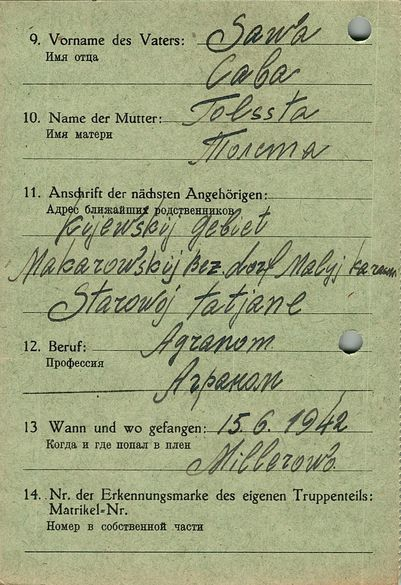 9. Vorname des Vaters: Sawa
Имя отца
Сава
10. Name der Mutter: Tolssta
Имя матери
Толста
11. Anschrift der nächsten Angehörigen:
Адрес ближайших родственников
Kijewskij Gebiet
Makarowskij bez. dorf Malyj
Starowoj tatjane
12. Beruf: Agranom
Профессия
Аграном
13 Wann und wo gefangen: 15.6.1942
Когда и где попал в плен
Millerowo
14. Nr. der Erkennungsmarke des eigenen Truppenteils:
Matrikel-Nr.
Номер в собственной части